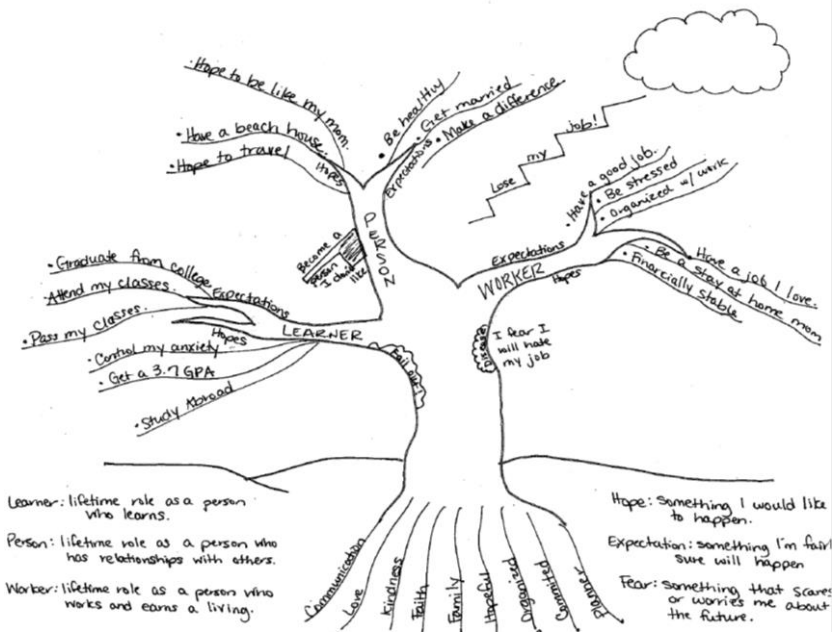 • Hope to be like my mom.
• Have a beach house.
• Hope to travel
Hopes
• Be healthy
• Get married
• Make a difference
Expectations
PERSON
Become a
person
I don't
like
Lose my job!
• Have a good job.
• Be stressed
• Organized w/ work
Expectations
WORKER
Hopes
• Have a job I love.
• Be a stay at home mom
• Financially stable
I fear I
will hate
my job
• Graduate from college
• Attend my classes.
• Pass my classes.
Expectations
LEARNER
Hopes
• Control my anxiety
• Get a 3.7 GPA
• Study Abroad
Fail out!
Learner: lifetime role as a person
who learns.
Person: lifetime role as a person who
has relationships with others.
Worker: lifetime role as a person who
works and earns a living.
Communication
Love
Kindness
Faith
Family
Hopeful
Organized
Committed
Planner
Hope: Something I would like
to happen.
Expectation: something I'm fairl
sure will happen
Fear: something that scares
or worries me about
the future.